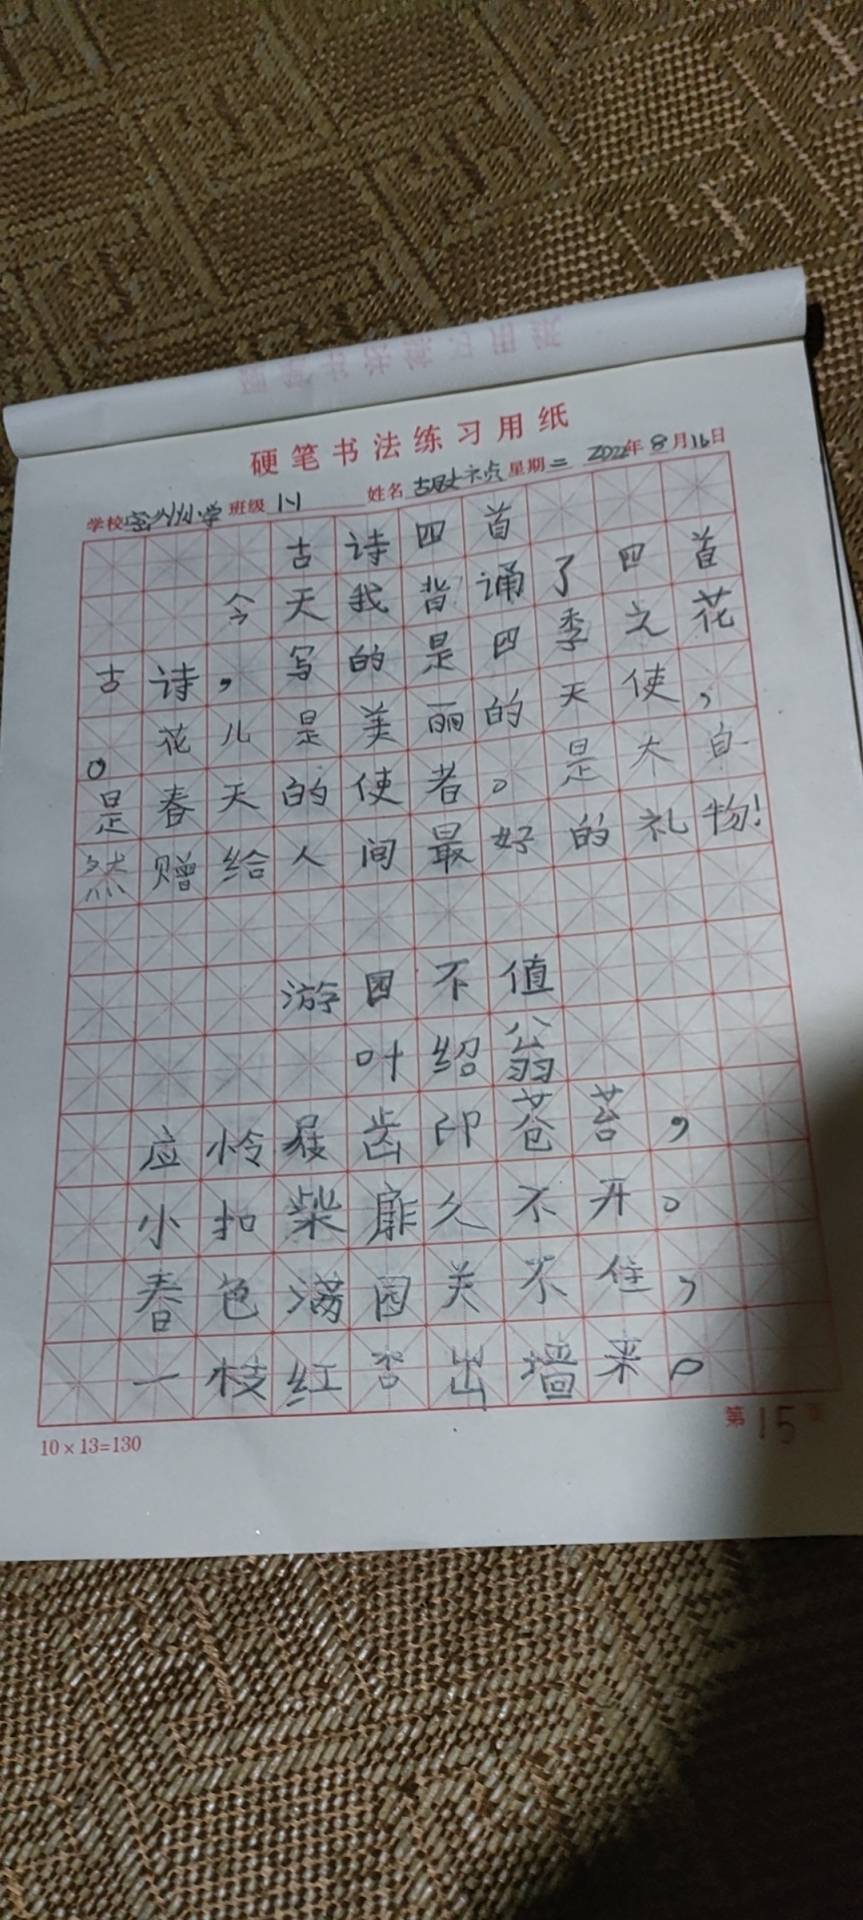 硬笔书法练习用纸
学校密州小学 班级1-1 姓名 星期二 2022年8月16日
古诗四首
今天我背诵了四首
古诗，写的是四季之花
。花儿是美丽的天使，
是春天的使者。是大自
然赠给人间最好的礼物！
游园不值
叶绍翁
应怜屐齿印苍苔，
小扣柴扉久不开。
春色满园关不住，
一枝红杏出墙来。
10×13=130
第15页